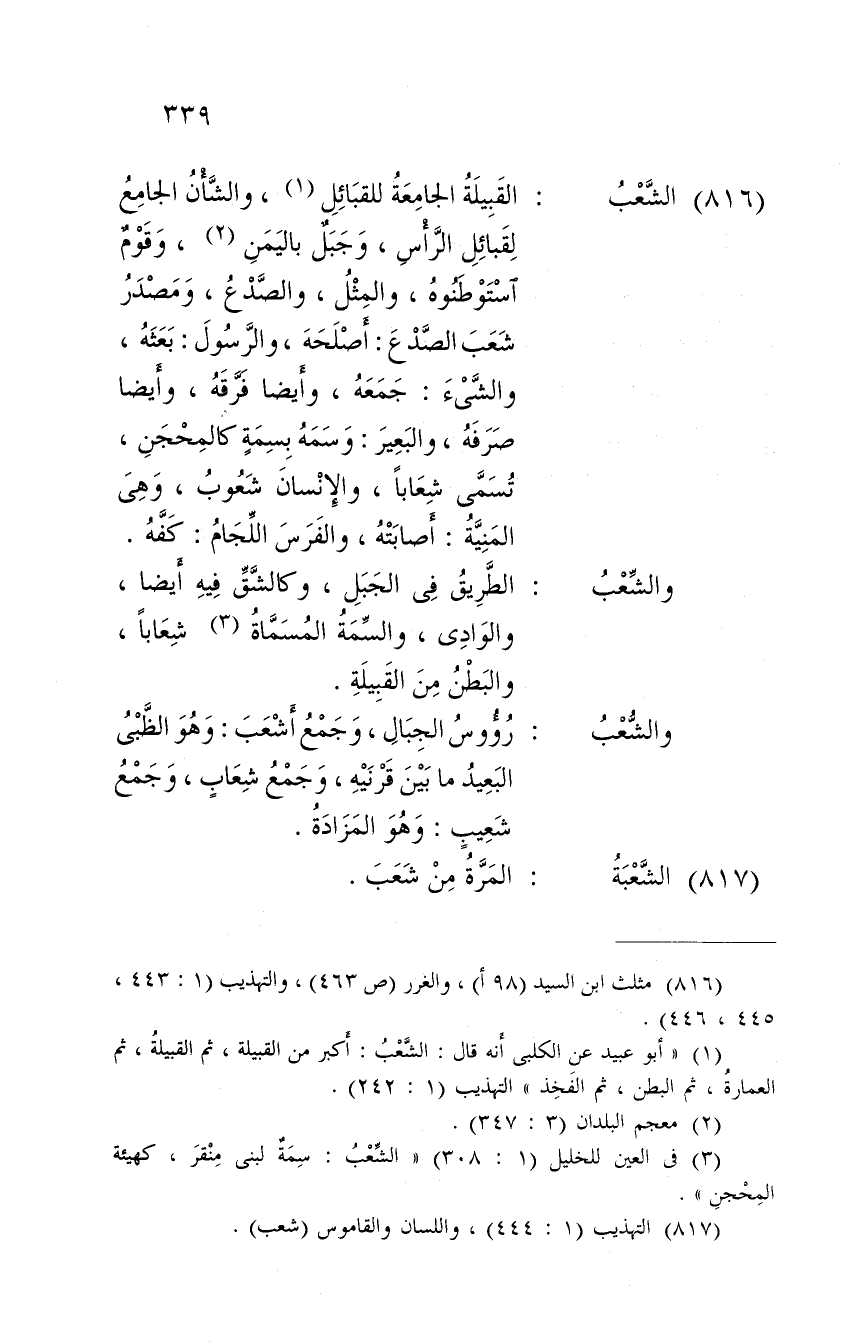 ٣٣٩
(٨١٦) الشَّعْبُ : القَبِيلَةُ الجامِعَةُ للقبَائِلِ (١) ، والشَّأْنُ الجامِعُ
لِقَبائِلِ الرَّأْسِ ، وَجَبَلٌ باليَمَنِ (٢) ، وَقَوْمٌ
ٱسْتَوْطَنُوهُ ، والمِثْلُ ، والصَّدْعُ ، وَمَصْدَرُ
شَعَبَ الصَّدْعَ : أَصْلَحَهَ ، والرَّسُولَ : بَعَثَهُ ،
والشَّىْءَ : جَمَعَهُ ، وأَيضا فَرَّقَهُ ، وأَيضا
صَرَفَهُ ، والبَعِيرَ : وَسَمَهُ بِسِمَةٍ كالمِحْجَنِ ،
تُسَمَّى شِعَاباً ، والإِنْسانَ شَعُوبُ ، وَهِىَ
المَنِيَّةُ : أَصابَتْهُ ، والفَرَسَ اللِّجَامُ : كَفَّهُ .
والشِّعْبُ : الطَّرِيقُ فِى الجَبَلِ ، وكالشَّقِّ فِيهِ أَيضا ،
والوَادِى ، والسِّمَةُ المُسَمَّاةُ (٣) شِعَاباً ،
والبَطْنُ مِنَ القَبِيلَةِ .
والشُّعْبُ : رُؤُوسُ الجِبَالِ ، وَجَمْعُ أَشْعَبَ : وَهُوَ الظَّبْىُ
البَعِيدُ ما بَيْنَ قَرْنَيْهِ ، وَجَمْعُ شِعَابٍ ، وَجَمْعُ
شَعِيبٍ : وَهُوَ المَزَادَةُ .
(٨١٧) الشَّعْبَةُ : المَرَّةُ مِنْ شَعَبَ .
(٨١٦) مثلث ابن السيد (٩٨ أ) ، والغرر (ص ٤٦٣) ، والتهذيب (١ : ٤٤٣ ،
٤٤٥ ، ٤٤٦) .
(١) « أبو عبيد عن الكلبى أَنه قال : الشَّعْبُ : أَكبر من القبيلة ، ثم القبيلةُ ، ثم
العمارةُ ، ثم البطن ، ثم الفَخِذ » التهذيب (١ : ٢٤٢) .
(٢) معجم البلدان (٣ : ٣٤٧) .
(٣) فى العين للخليل (١ : ٣٠٨) « الشِّعْبُ : سِمَةٌ لبنى مِنْقرَ ، كهيئة
المِحْجنِ » .
(٨١٧) التهذيب (١ : ٤٤٤) ، واللسان والقاموس (شعب) .